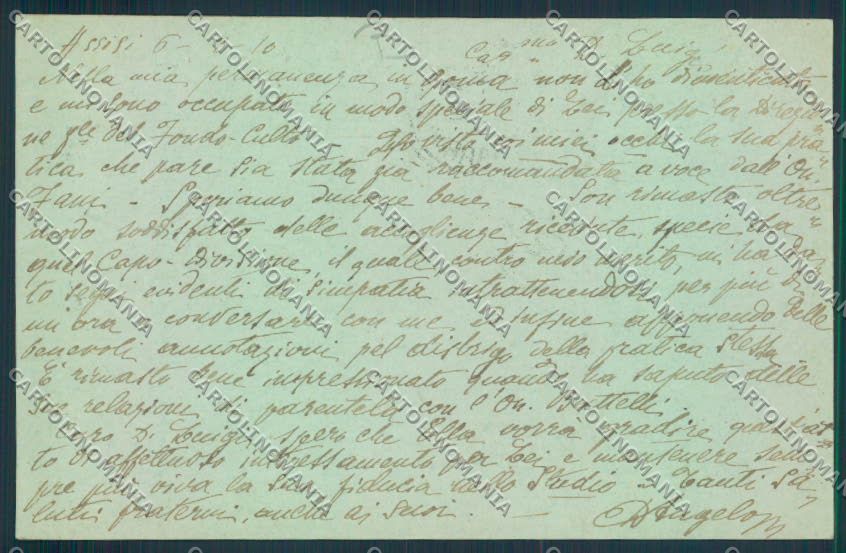 Assisi 6- 10
Car.mo D. Luigi
Nella mia permanenza in Roma non L'ho dimenticato
e mi sono occupato in modo speciale di Lei presso la Direzio=
ne gle del Fondo-Culto - Ho visto coi miei occhi la sua pra=
tica, che pare sia stata già raccomandata a voce dall'On.
Fani - Speriamo dunque bene - Son rimasto oltre=
modo soddisfatto delle accoglienze ricevute, specie da
quel Capo-divisione, il quale, contro mio merito, mi ha da=
to segni evidenti di simpatia intrattenendosi per più di
mi ora a conversare con me, e infine apponendo delle
benevoli annotazioni pel disbrigo della pratica stessa
È rimasto bene impressionato quando ha saputo delle
sue relazioni di parentela con l'On. Battelli
Caro D. Luigi, spero che Ella vorrà gradire questo at=
to di affettuoso interessamento per Lei e mantenere sem=
pre più viva la sua fiducia nello Studio - Tanti sa=
luti fraterni, anche ai suoi. -
D'Angelo
CARTOLINOMANIA